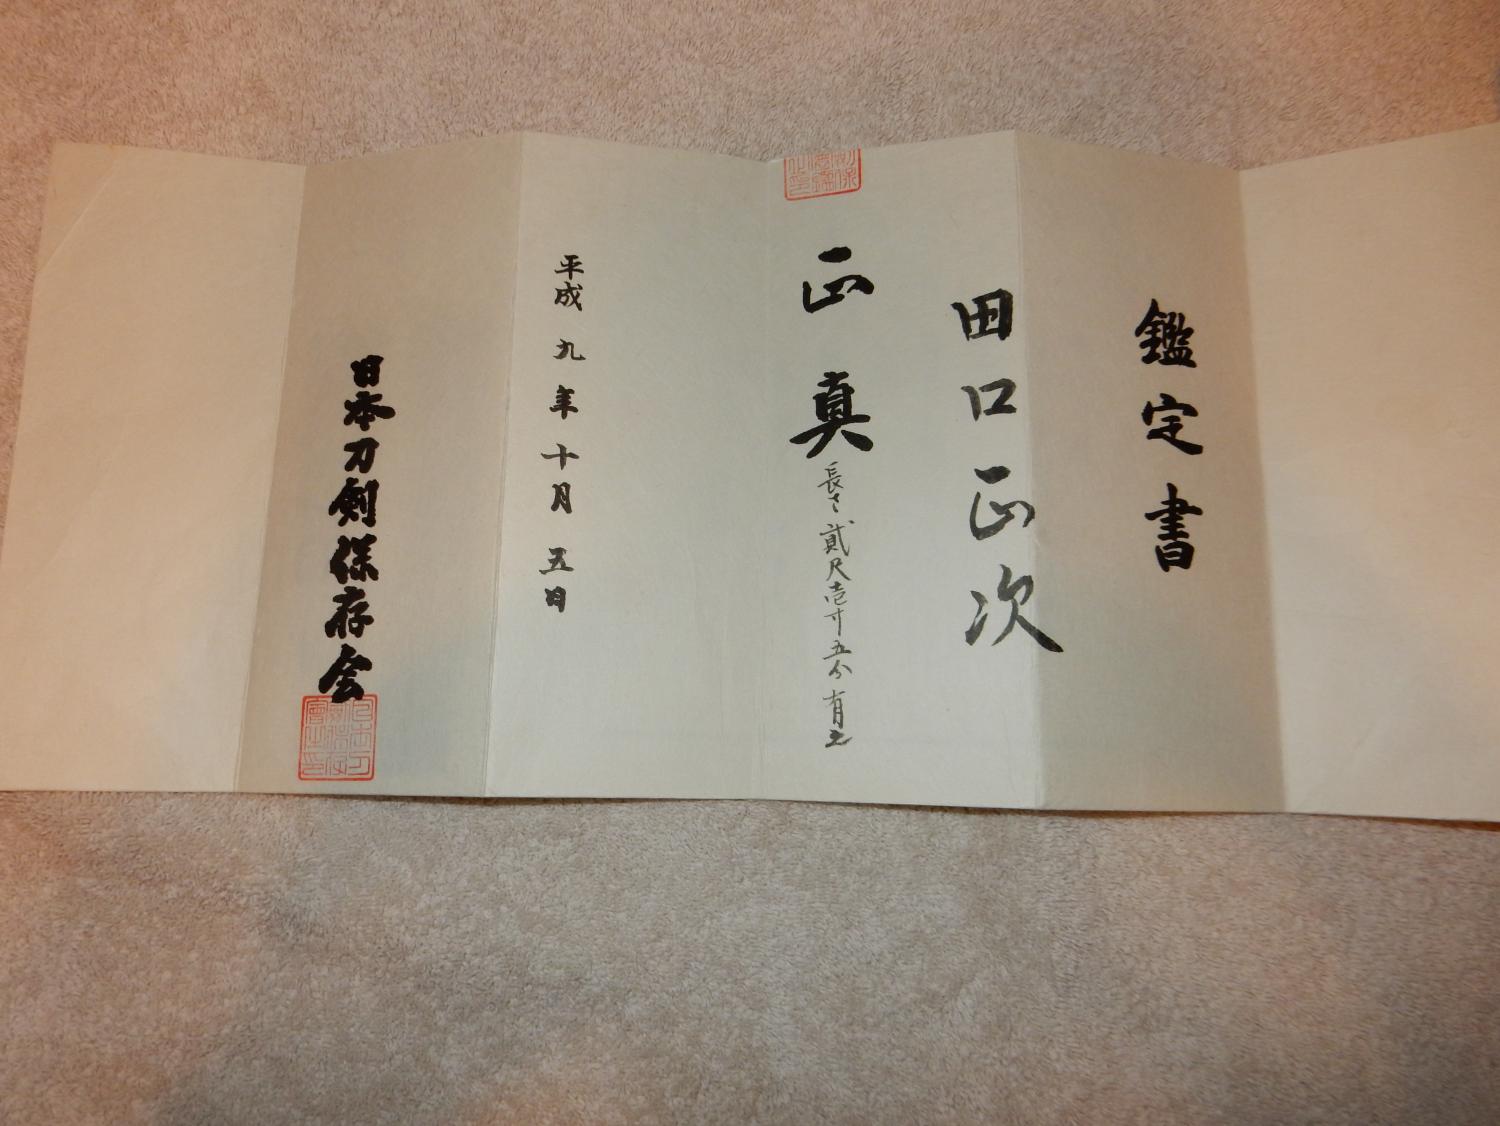 鑑定書
田口正次
正真
長さ貳尺壱寸五分有之
平成九年十月五日
日本刀剣保存会